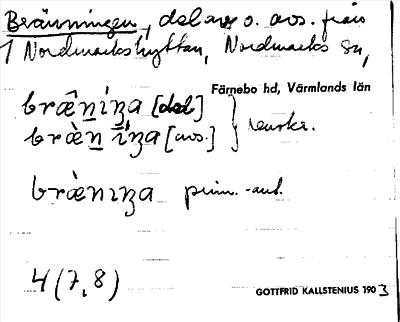 Bränningen, del av o. avs. från
1 Nordmarkshyttan, Nordmarks sn,
Färnebo hd, Värmlands län
bræ̂nıŋa [del]
bræ̀nı̄ŋa [avs.]
renskr.
bræ̀nıŋa prim.-uppt.
4 (7, 8)
GOTTFRID KALLSTENIUS 1903